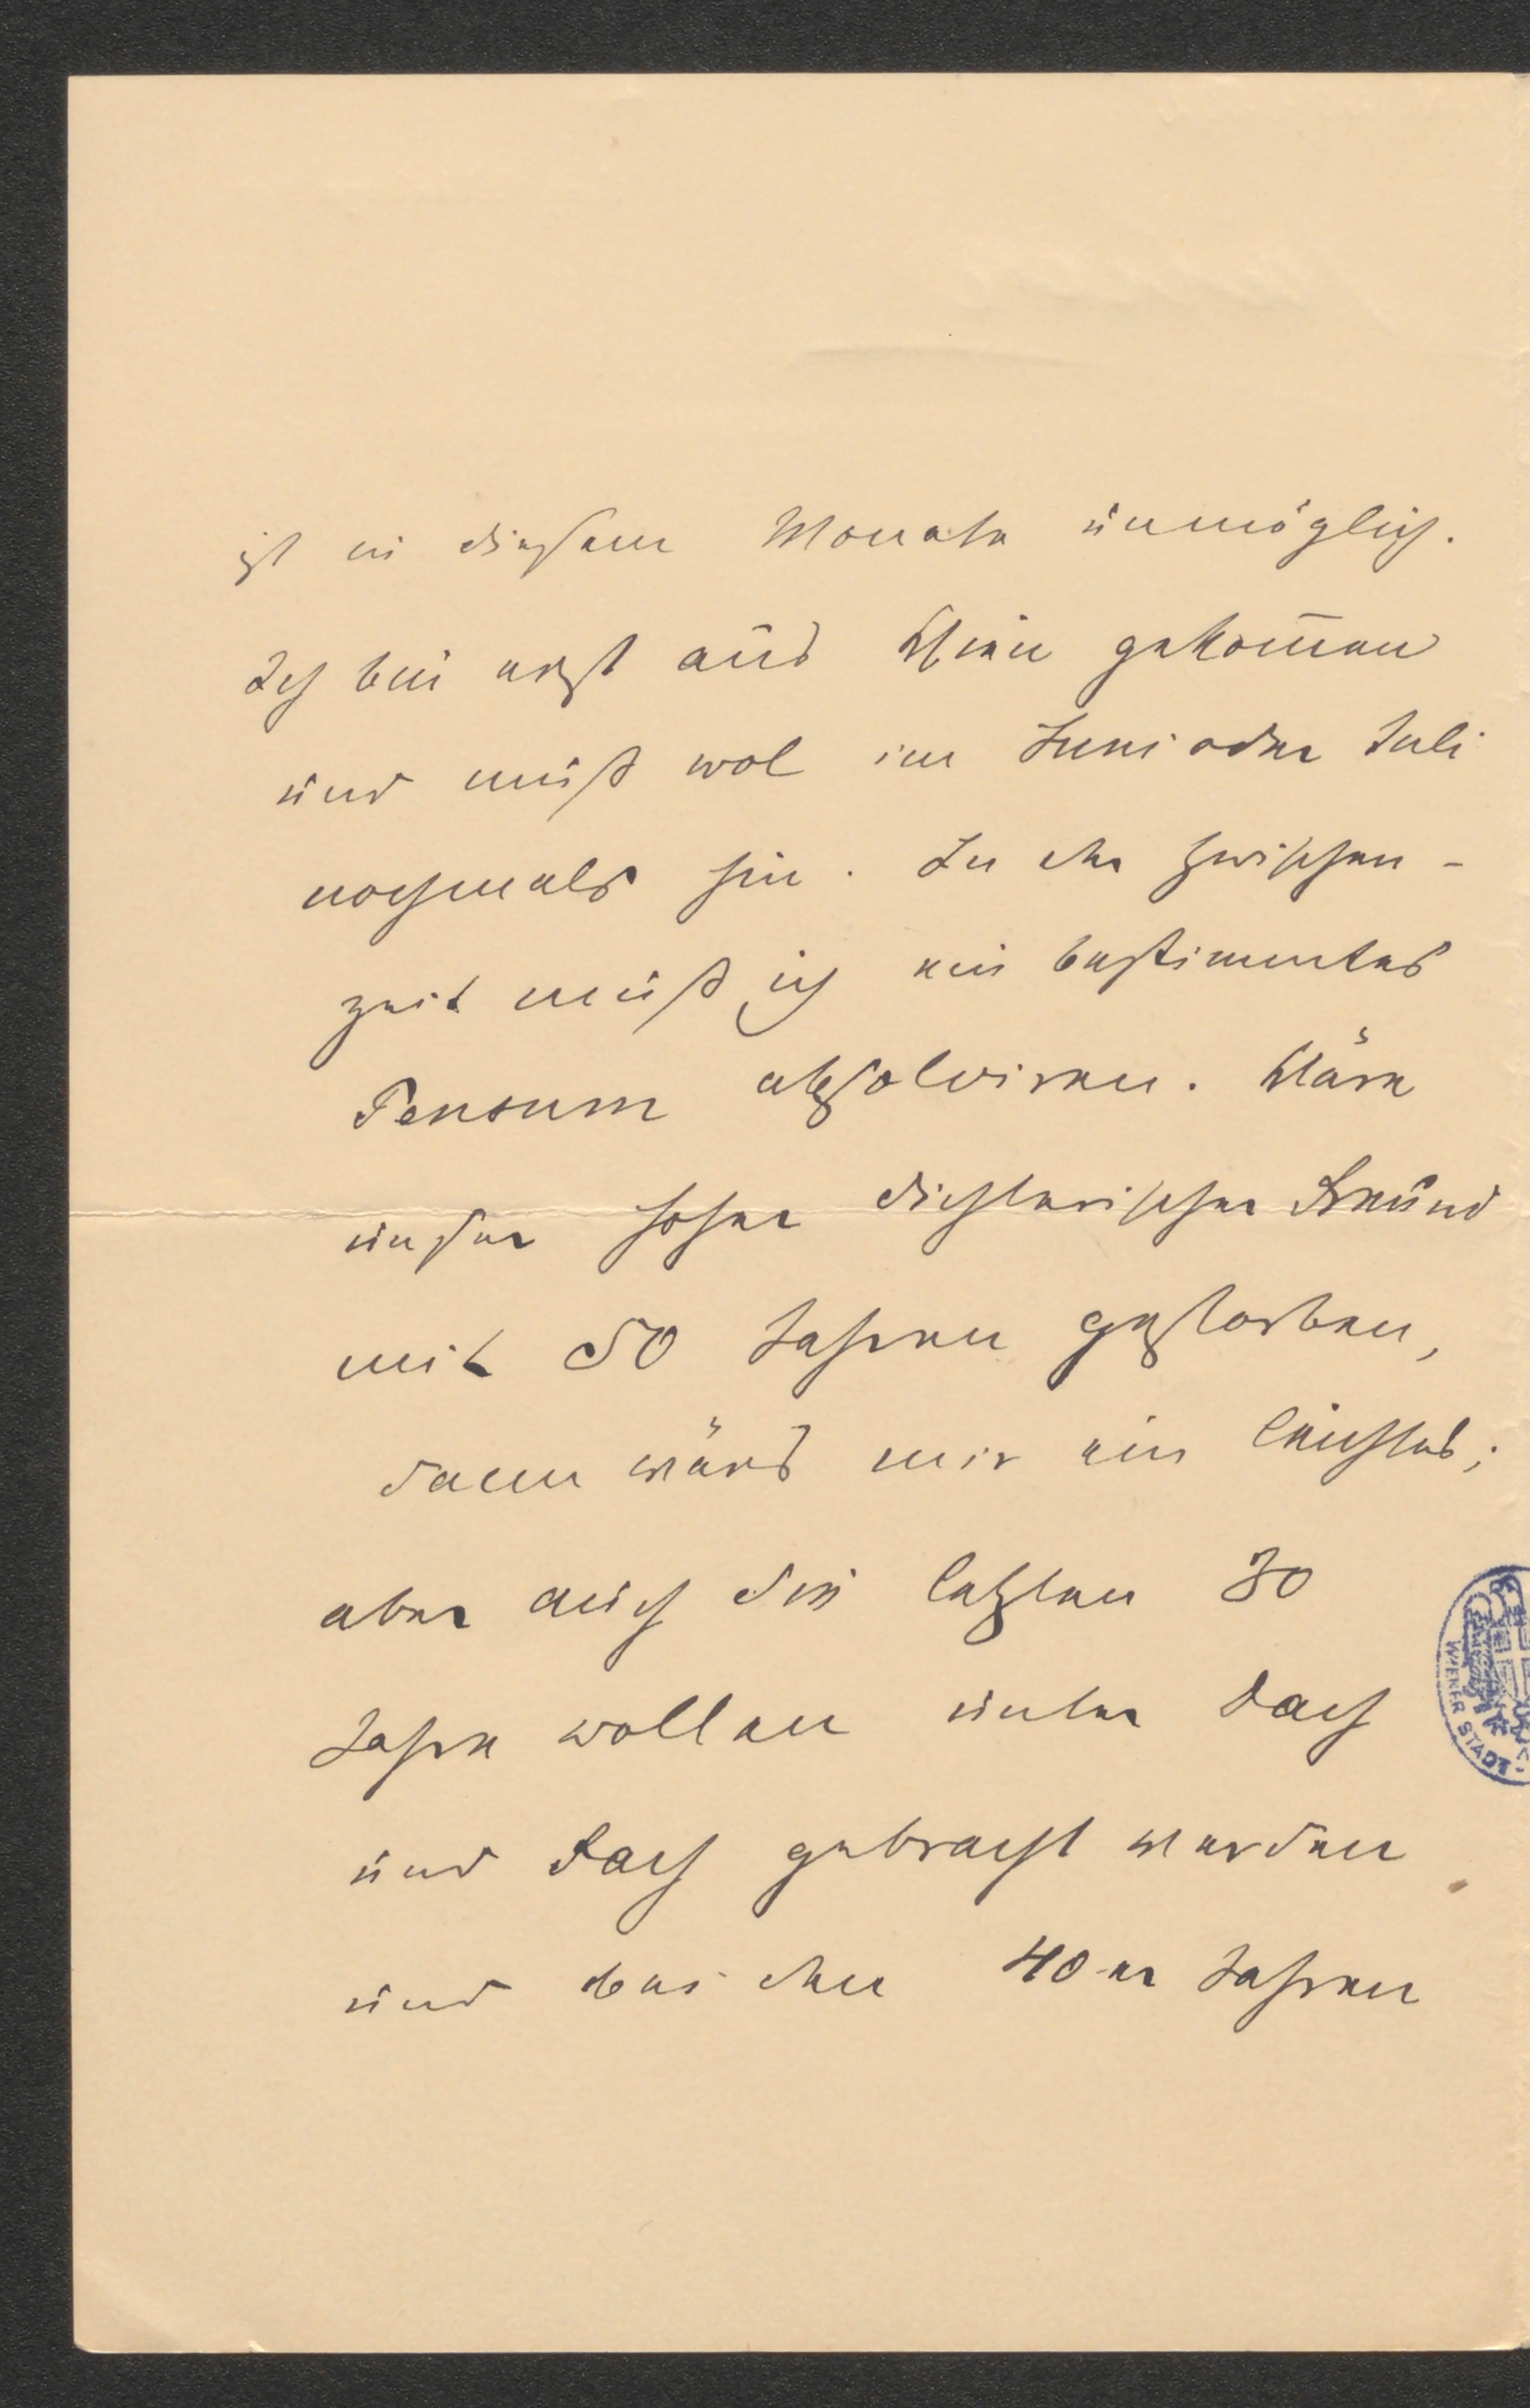 ist in diesem Monate unmöglich.
Ich bin erst aus Wien gekom̅en
und muß wol im Juni oder Juli
nochmals hin. In der Zwischen-
zeit muß ich ein bestimmtes
Pensum absolviren. Wäre
unser hoher dichterischer Freund
mit 50 Jahren gestorben,
dann wärs mir ein leichtes;
aber auch die letzten 30
Jahre wollen unter Dach
und Fach gebracht werden
und bei den 40-er Jahren
WIENER STADT-